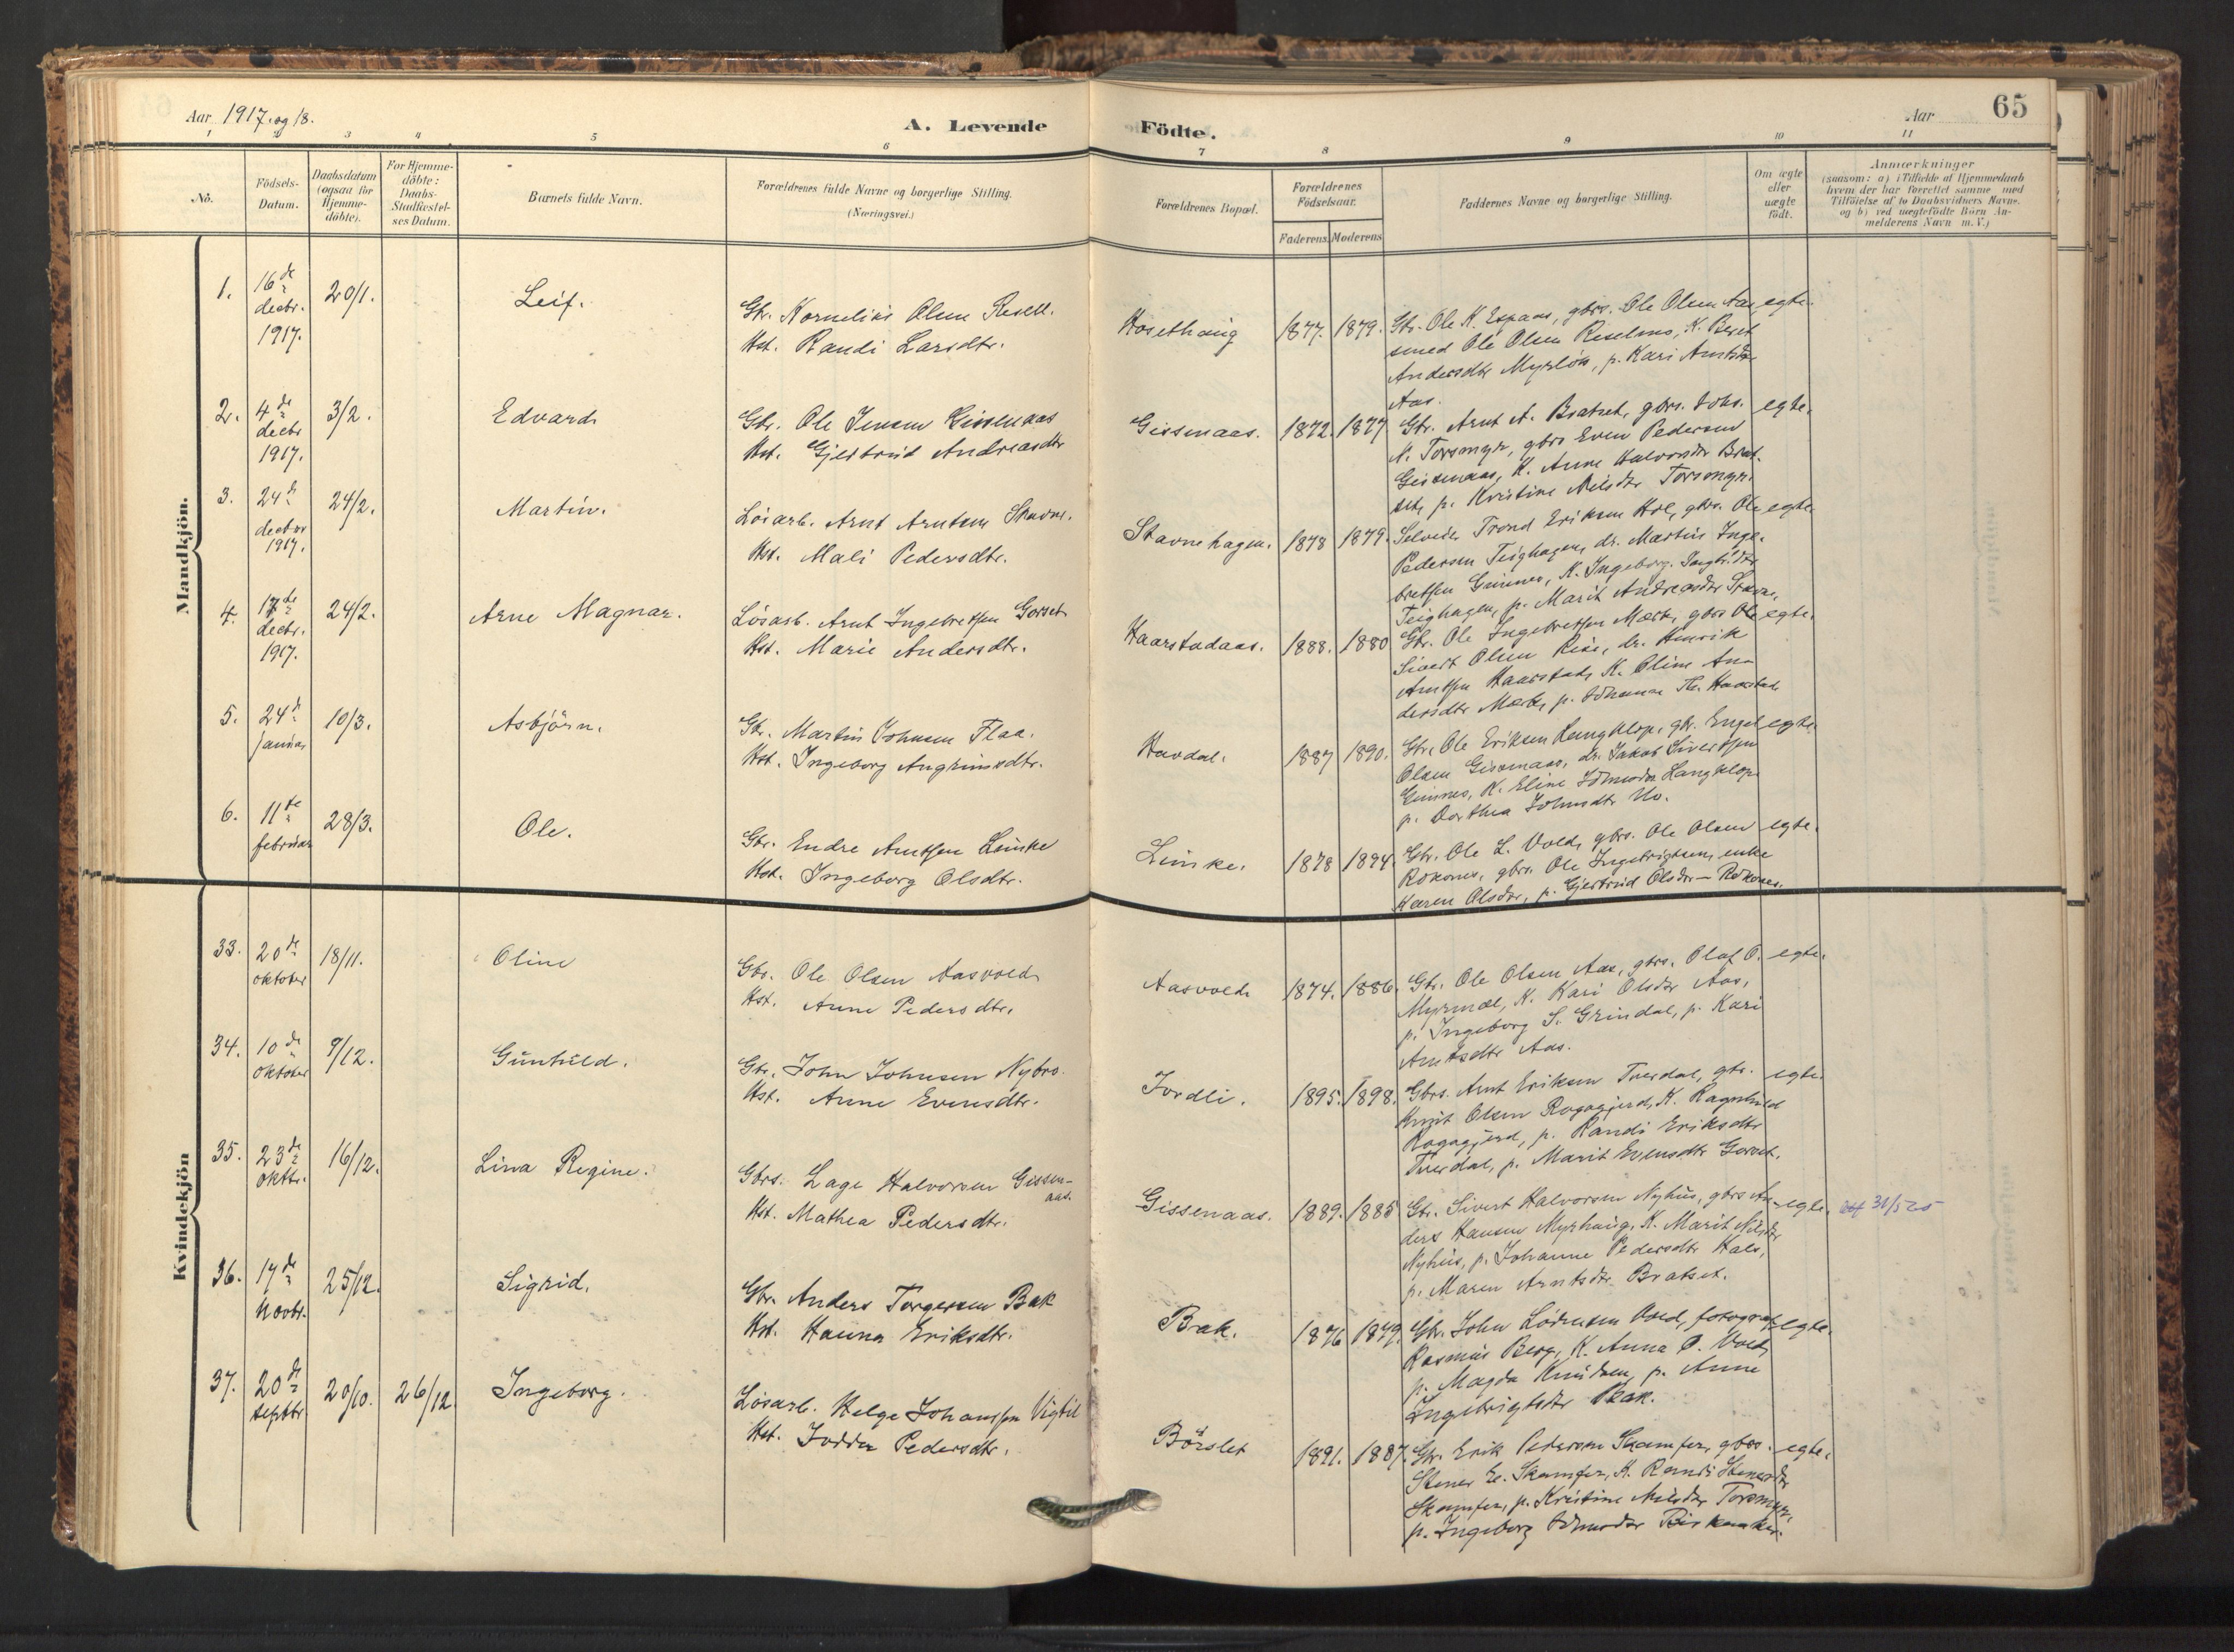 Aar 1917. og 18.
A. Levende Födte.
Aar 65
1 2 3 4 5 6 7 8 9 10 11
No.
Födsels-Datum.
Daabsdatum (ogsaa for Hjemme-döbte).
For Hjemme-döbte: Daabs-Stadfæstel-ses Datum.
Barnets fulde Navn.
Forældrenes fulde Navne og borgerlige Stilling.
(Næringsvei.)
Forældrenes Bopæl.
Forældrenes Födselsaar.
Faderens. Moderens
Faddernes Navne og borgerlige Stilling.
Om ægte eller uægte födt.
Anmærkninger
(saasom: a) i Tilfælde af Hjemmedaab
hvem der har forrettet samme med
Tilföielse af to Daabsvidners Navne.
og b) ved uægtefödte Börn An-
melderens Navn m. V.)
Mandkjön.
1. 16de decbr. 1917. 20/1. Leif.
Gbr. Kornelius Olsen Resell.
Hst. Randi Larsdtr.
Hosethaug 1877. 1879.
Gbr. Ole K. Espaas, gbrs. Ole Olsen Aas, egte.
smed Ole Olsen Reselmo, K. Beret
Andersdtr Myrløk, p. Kari Arntsdtr
Aas.
2. 4de decbr 1917. 3/2. Edvard
Gbr. Ole Jensen Gissenaas
Hst. Gjertrud Andreasdtr
Gissenaas. 1872. 1877
Gbr. Arnt A. Bratset, gbrs. Johs. egte.
N. Torsmyr, gbrs Even Pedersen
Gissenaas, K. Anne Halvorsdtr Brat-
set, p. Kristine Nilsdtr Torsmyr.
3. 24d decbr 1917. 24/2. Martin.
Løsarb. Arnt Arntsen Stavne.
Hst. Mali Pedersdtr.
Stavnehagen. 1878 1879.
Selveier Trond Eriksen Hol, gbrs. Ole egte.
Pedersen Teighagen, dr. Martin Inge-
bretsen Grinnes, K. Ingeborg Ingbr.dtr
Teighagen, p. Marit Andreasdtr Stavne,
4. 17de decbr. 1917. 24/2. Arne Magnar.
Løsarb. Arnt Ingebretsen Gorset
Hst. Marie Andersdtr.
Haarstadaas. 1888. 1880
Gbr. Ole Ingebretsen Mærk, gbrs Ole egte.
Sivert Olsen Rise, dr. Henrik
Arntsen Haarstad, K. Oline An-
dersdtr Mærk, p. Johanna Th. Haarstad
5. 24d januar 10/3. Asbjørn.
Gbr. Martin Johnsen Flaa.
Hst. Ingeborg Angrimsdtr.
Havdal. 1887 1890.
Gbr. Ole Eriksen Langklop, gbr. Engel egte.
Olsen Gissenaas, dr. Jakob Sivertsen
Grinnes, K. Eline Johnsdtr Langklop
p. Dorthea Johnsdtr Mo.
6. 11te februar 28/3. Ole.
Gbr. Endre Arntsen Linke
Hst. Ingeborg Olsdtr.
Linke. 1878 1894.
Gbr. Ole L. Vold, gbrs. Ole Olsen egte.
Rokones, gbrs. Ole Ingebrigtsen, enke
Karen Olsdtr, p. Gjertrud Olsdtr - Rokones.
Kvindekjön
33. 20de oktober 18/11. Oline
Gbr. Ole Olsen Aasvold
Hst. Anne Pedersdtr.
Aasvold 1874. 1886.
Gbr. Ole Olsen Aas, gbrs. Olaf O. egte.
Myrmæl, K. Kari Olsdtr Aas,
p. Ingeborg S. Grindal, p. Kari
Arntsdtr Aas.
34. 10de oktober 9/12. Gunhild.
Gbr. John Johnsen Nybro.
Hst. Anne Evensdtr.
Jordli. 1895. 1898.
Gbrs. Arnt Eriksen Tverdal, gbr. egte.
Knut Olsen Rogogjerd, K. Ragnhild
Rogogjerd, p. Randi Eriksdtr
Tverdal, p. Marit Evensdtr Gorset.
35. 23de oktbr. 16/12. Lina Regine.
Gbrs. Lage Halvorsen Gissen-
aas.
Hst. Mathea Pedersdtr.
Gissenaas. 1889. 1885
Gbr. Sivert Halvorsen Nyhus, gbrs An- egte. 31/5 25
ders Hansen Myrhaug, K. Marit Nilsdtr
Nyhus, p. Johanne Pedersdtr Hals,
p. Maren Arntsdtr Bratset.
36. 17de Novbr. 25/12. Sigrid.
Gbr. Anders Torgersen Bak
Hst. Hanna Eriksdtr.
Bak. 1876 1879.
Gbr. John Lodensen Vold, fotograf egte.
Rasmus Berg, K. Anna P. Vold,
p. Magda Knudsen, p. Anne
Ingebrigtsdtr Bak.
37. 20de septbr. 20/10. 26/12. Ingeborg.
Løsarb. Helge Johansen Vigtil
Hst. Jodda Pedersdtr.
Börslet 1891. 1887.
Gbr. Erik Pedersen Skamfer, gbrs. egte.
Stener E. Skamfer, K. Randi Stenersdtr
Skamfer, p. Kristine Nilsdtr Torsmyr,
p. Ingeborg Johnsdtr Birkeaker.